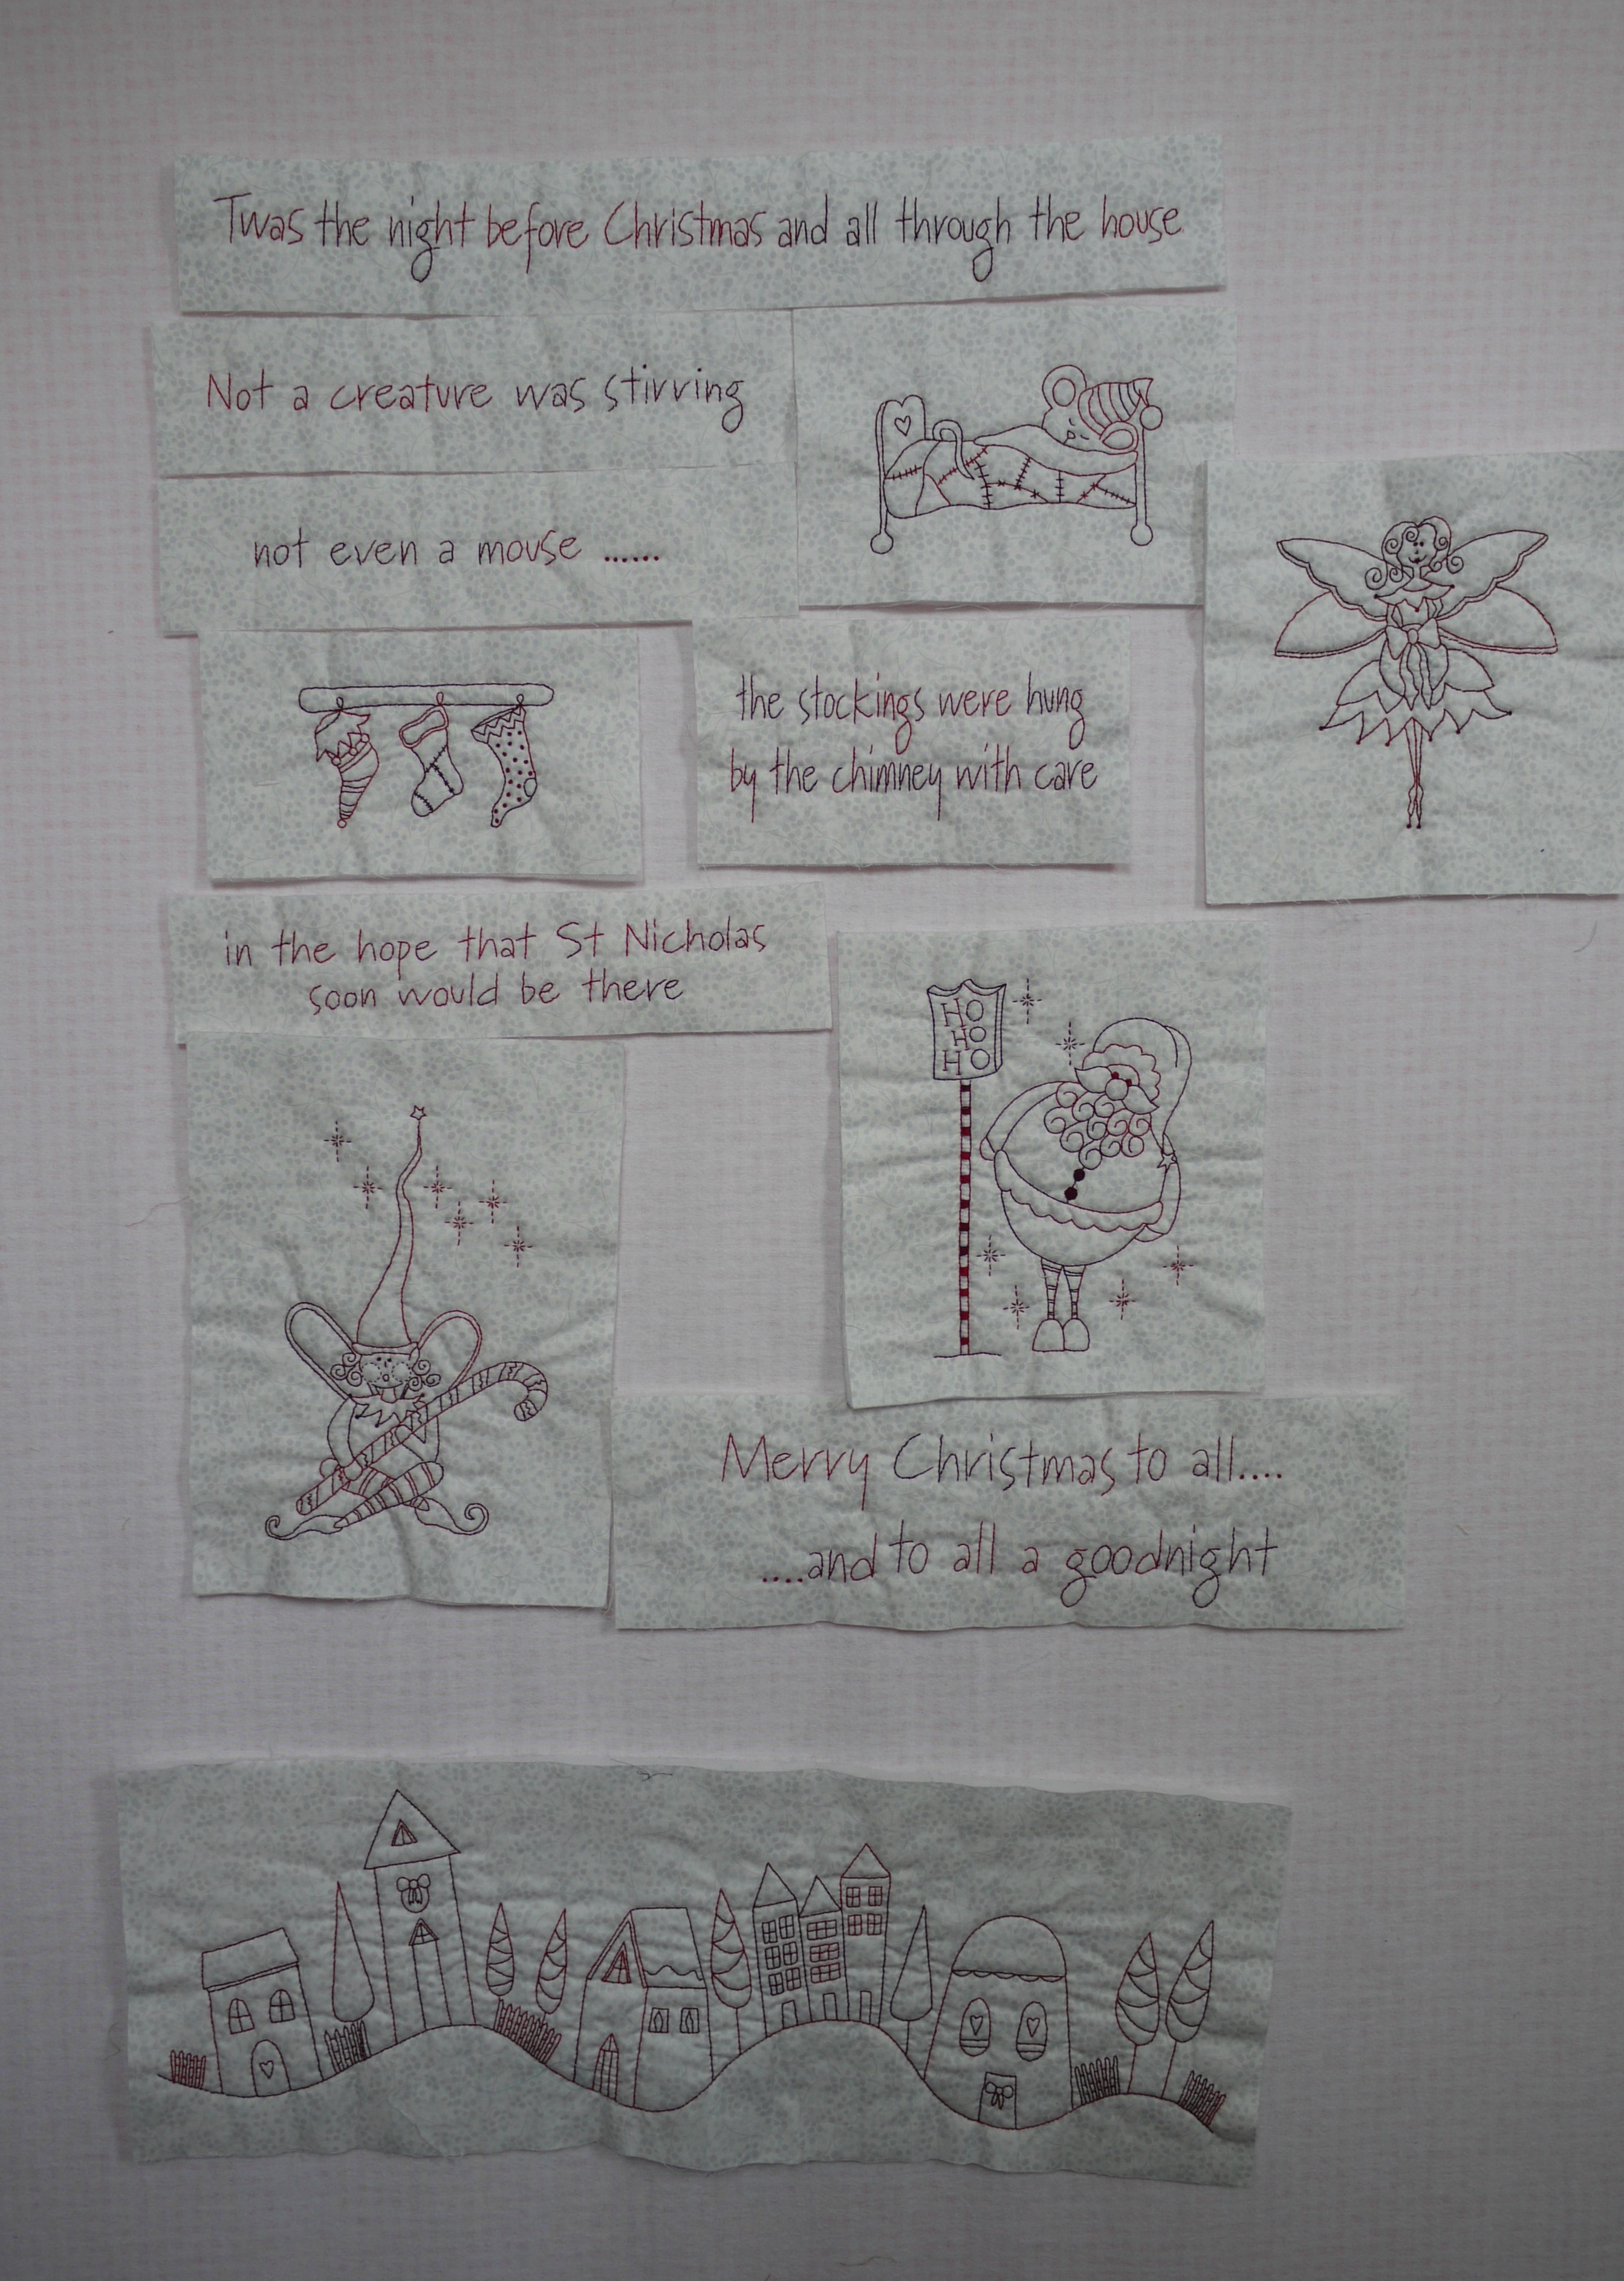 Twas the night before Christmas and all through the house
Not a creature was stirring
not even a mouse ......
the stockings were hung
by the chimney with care
in the hope that St Nicholas
soon would be there
HO
HO
HO
Merry Christmas to all....
....and to all a goodnight